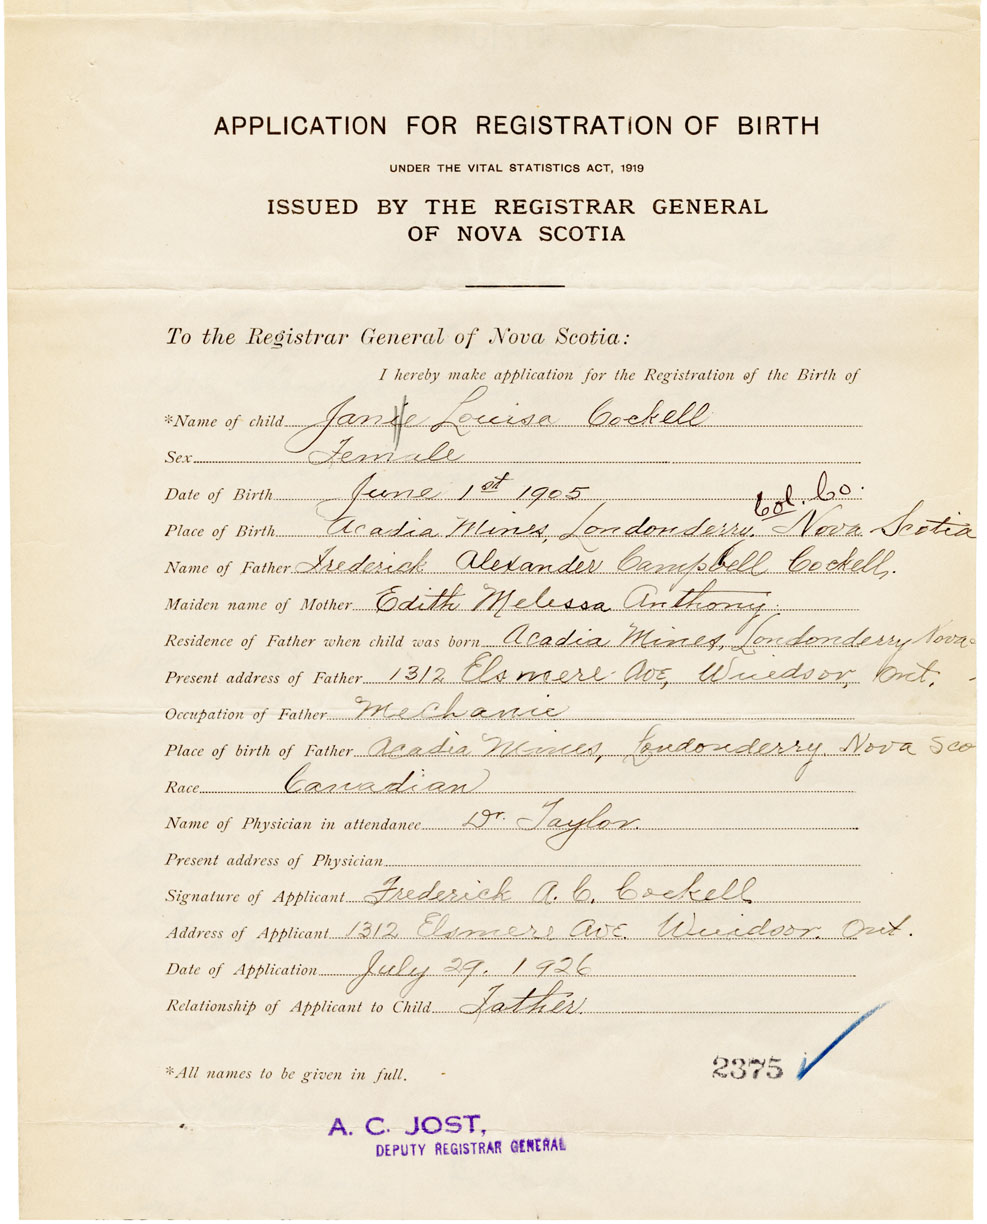 APPLICATION FOR REGISTRATION OF BIRTH
UNDER THE VITAL STATISTICS ACT, 1919
ISSUED BY THE REGISTRAR GENERAL
OF NOVA SCOTIA
To the Registrar General of Nova Scotia:
I hereby make application for the Registration of the Birth of
*Name of child Janie Louisa Cockell
Sex Female
Date of Birth June 1st 1905
Col. Co.
Place of Birth Acadia Mines, Londonderry. Nova Scotia
Name of Father Frederick Alexander Campbell Cockell.
Maiden name of Mother Edith Melessa Anthony.
Residence of Father when child was born Acadia Mines, Londonderry Nova
Present address of Father 1312 Elsmere Ave, Windsor, Ont.
Occupation of Father Mechanic
Place of birth of Father Acadia Mines, Londonderry Nova Sco
Race Canadian
Name of Physician in attendance Dr. Taylor.
Present address of Physician
Signature of Applicant Frederick A. C. Cockell
Address of Applicant 1312 Elsmere Ave. Windsor. Ont.
Date of Application July 29. 1926
Relationship of Applicant to Child Father.
2375
*All names to be given in full.
A. C. JOST,
DEPUTY REGISTRAR GENERAL